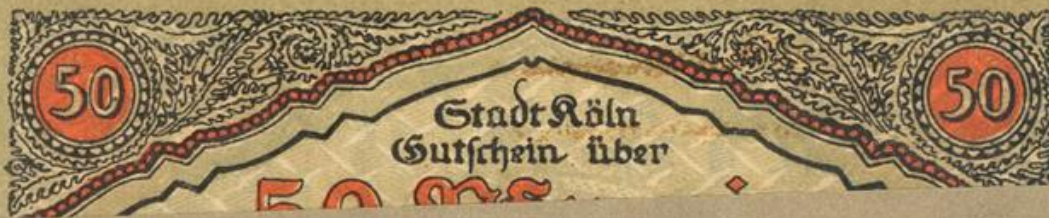 50 50
Stadt Köln
Gutschein über
50